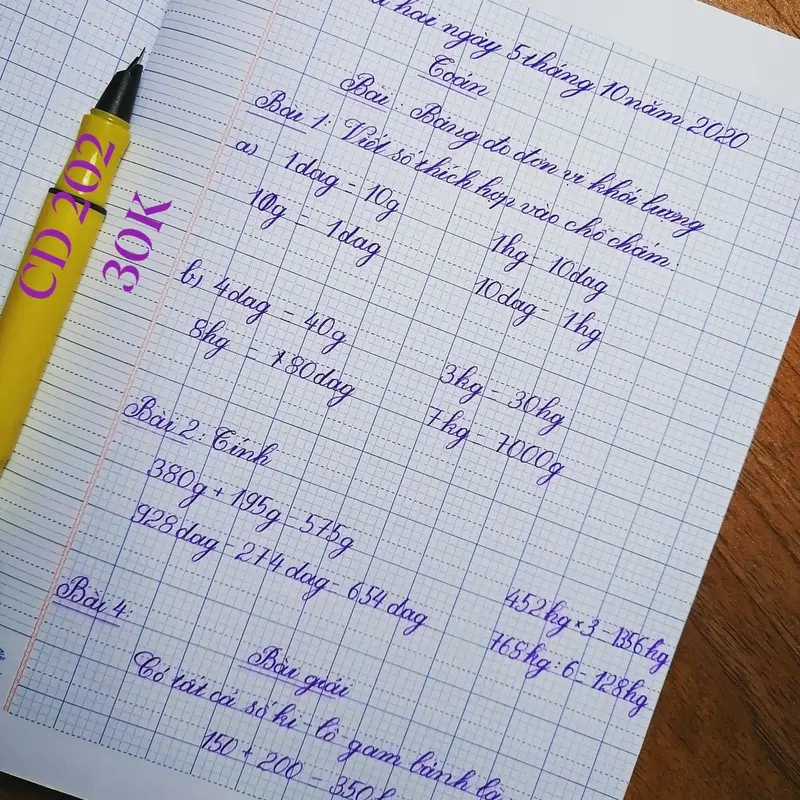 hai ngày 5 tháng 10 năm 2020
Toán
Bài: Bảng đo đơn vị khối lượng
Bài 1: Viết số thích hợp vào chỗ chấm:
a) 1dag = 10g 1hg = 10dag
10g = 1dag 10dag = 1hg
b) 4dag = 40g 3kg = 30hg
8hg = 80dag 7kg = 7000g
Bài 2: Tính
380g + 195g = 575g 452hg × 3 = 1356hg
928dag - 274dag = 654dag 768hg : 6 = 128hg
Bài 4:
Bài giải
Có tất cả số ki-lô gam bánh là
150 + 200 = 350
CD 202
30K